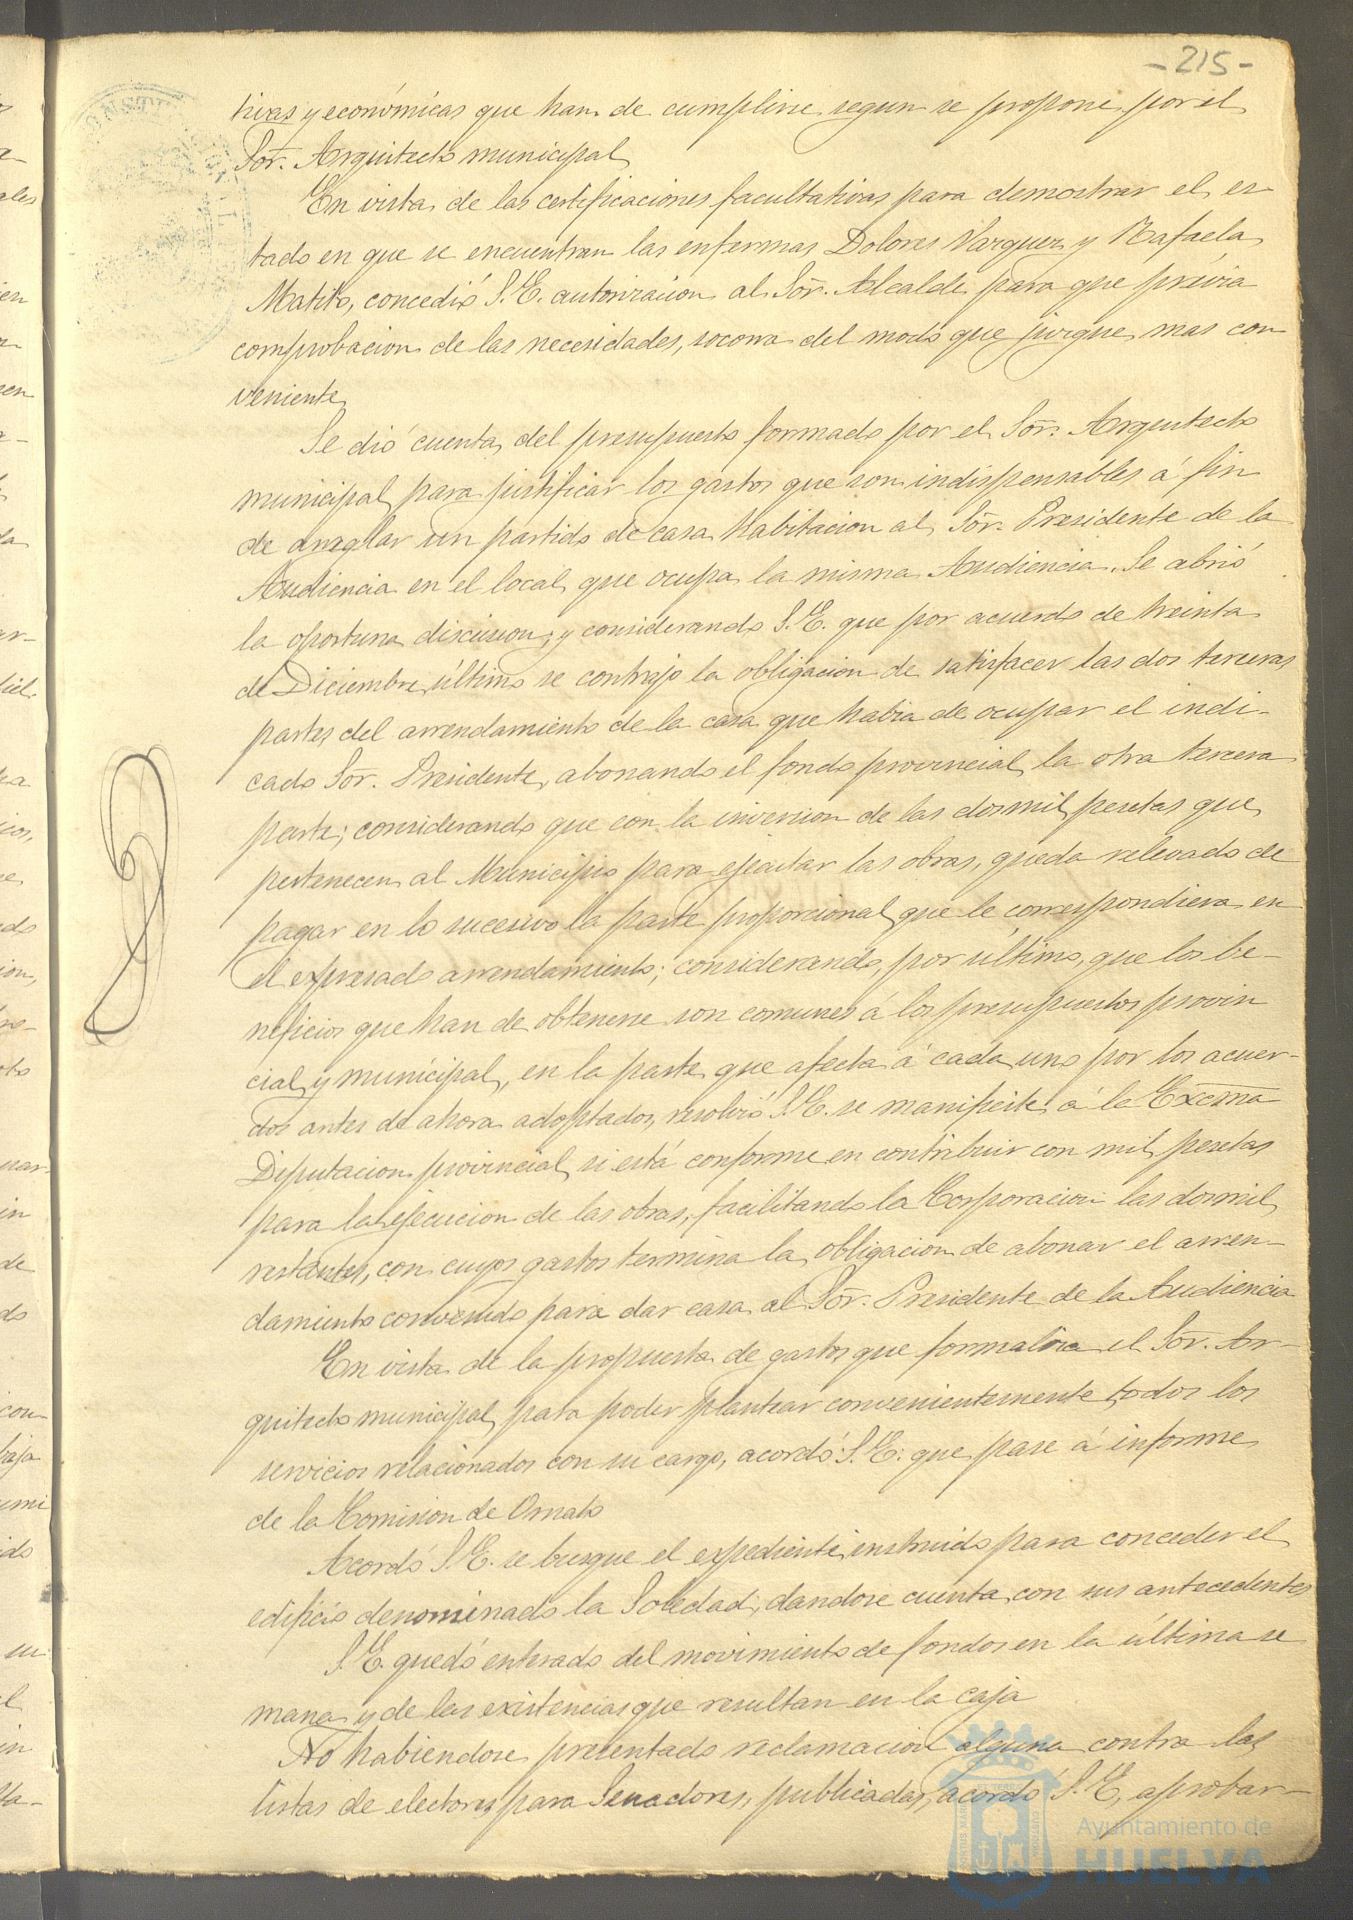 -215-
tivas y económicas que han de cumplirse segun se propone por el
Sor. Arquitecto municipal
En vista de las certificaciones facultativas para demostrar el es-
tado en que se encuentran las enfermas Dolores Vazquez y Rafaela
Matito, concedió S.E. autorizacion al Sor. Alcalde para que prévia
comprobacion de las necesidades, socorra del modo que juzgue mas con
veniente
Se dio cuenta del presupuesto formado por el Sor. Arquitecto
municipal para justificar los gastos que son indispensables á fin
de arreglar un partido de casa habitacion al Sor. Presidente de la
Audiencia en el local que ocupa la misma Audiencia. Se abrió
la oportuna discusion; y considerando S.E. que por acuerdo de treinta
de Diciembre último se contrajo la obligacion de satisfacer las dos terceras
partes del arrendamiento de la casa que habia de ocupar el indi-
cado Sor. Presidente, abonando el fondo provincial la otra tercera
parte; considerando que con la inversion de las dosmil pesetas que
pertenecen al Municipio para ejecutar las obras, queda relevado de
pagar en lo sucesivo la parte proporcional que le correspondiera en
el expresado arrendamiento; considerando, por último, que los be-
neficios que han de obtenerse son comunes á los presupuestos provin
cial y municipal, en la parte que afecta á cada uno por los acuer-
dos antes de ahora adoptados, resolvió S.E. se manifieste á la Excma
Diputacion provincial si está conforme en contribuir con mil pesetas
para la ejecucion de las obras, facilitando la Corporacion las dosmil
restantes, con cuyos gastos termina la obligacion de abonar el arren-
damiento convenido para dar casa al Sor. Presidente de la Audiencia
En vista de la propuesta de gastos que formaliza el Sor. Ar-
quitecto municipal para poder plantear convenientemente todos los
servicios relacionados con su cargo, acordó S.E. que pase á informe
de la Comision de Ornato
Acordó S.E. se busque el expediente instruido para conceder el
edificio denominado la Soledad, dandose cuenta con sus antecedentes
S.E. quedó enterado del movimiento de fondos en la última se
mana y de las existencias que resultan en la caja
No habiendose presentado reclamacion alguna contra las
listas de electores para Senadores, publicadas, acordó S.E, aprobar-
Ayuntamiento de
HUELVA